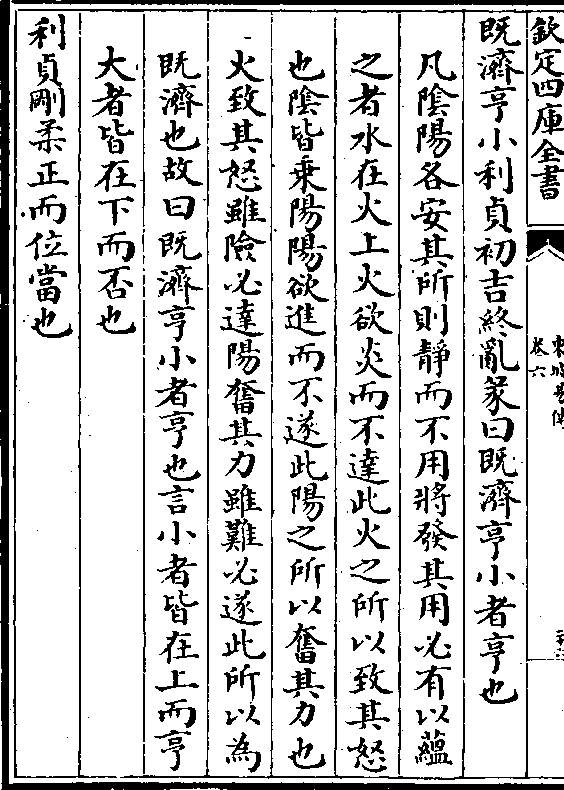 欽定四庫全書
東坡易傳
卷六
既濟亨小利貞初吉終亂彖曰既濟亨小者亨也
凡陰陽各安其所則靜而不用將發其用必有以蘊
之者水在火上火欲炎而不達此火之所以致其怒
也陰皆乘陽陽欲進而不遂此陽之所以奮其力也
火致其怒雖險必達陽奮其力雖難必遂此所以為
既濟也故曰既濟亨小者亨也言小者皆在上而亨
大者皆在下而否也
利貞剛柔正而位當也